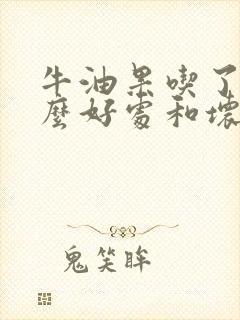 牛油果喫了
麼好處和壞
鬼笑眸